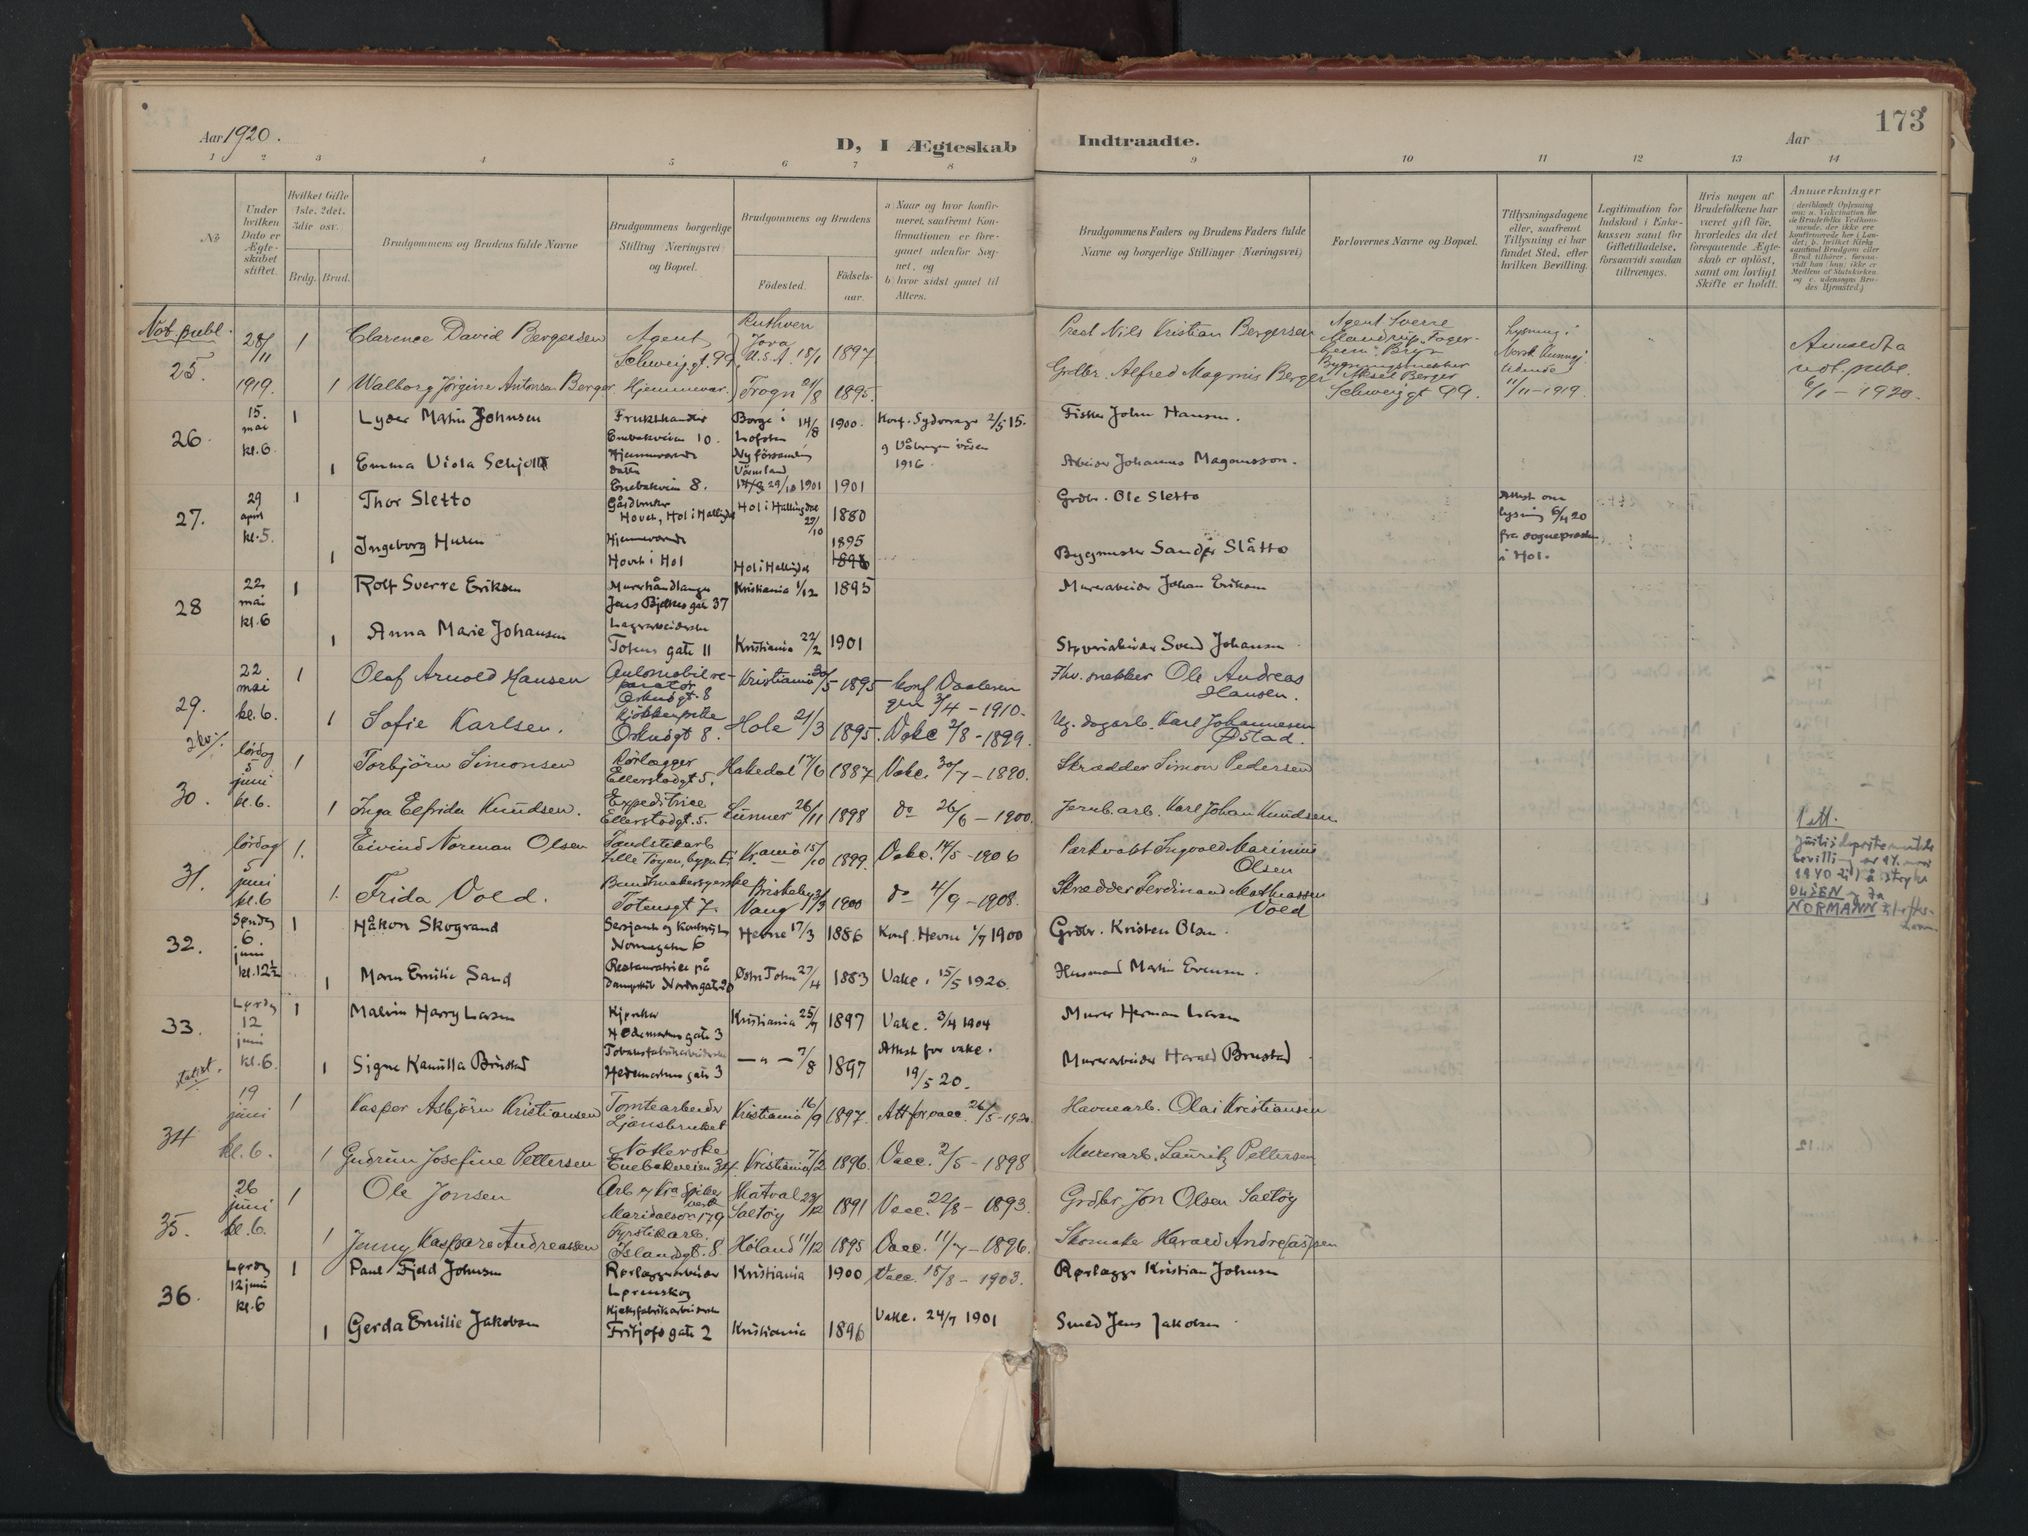 173
Aar 1920.
D, I Ægteskab Indtraadte.
Aar
1 2 3 4 5 6 7 8 9 10 11 12 13 14
No
Under hvilken Dato er Ægteskabet stiftet.
Hvilket Gifte (1ste, 2det, 3die osv.
Brdg. Brud.
Brudgommens og Brudens fulde Navne
Brudgommens borgerlige Stilling (Næringsvei) og Bopæl.
Brudgommens og Brudens
Födested. Födselsaar.
a) Naar og hvor konfirmeret, saafremt Konfirmationen er foregaaet udenfor Sognet, og
b) hvor sidst gaaet til Alters.
Brudgommens Faders og Brudens Faders fulde Navne og borgerlige Stillinger (Næringsvei)
Forlovernes Navne og Bopæl.
Tillysningsdagene eller, saafremt Tillysning ei har fundet Sted, efter hvilken Bevilling.
Legitimation for Indskud i Enkekassen samt for Giftetilladelse, forsaavidt saadan tiltrænges.
Hvis nogen af Brudefolkene har været gift för, hvorledes da det foregaaende Ægteskab er oplöst, samt om lovligt Skifte er holdt.
Anmerkninger
Not. publ.
25. 28/11 1919. 1 Clarence David Bergersen Agent Schweigt. 99. Ruthven Jova U.S.A. 18/1 1897 Nils Kristian Bergersen Agent Sverre
1 Walborg Jørgine Antonsen Berger Hjemmevær. Frogn 21/8 1895. Grdbr. Alfred Magnus Berger Aksel Berger Schweigt 99. 11/11-1919. Anmeldta not. publ. 6/1-1920.
26. 15. mai kl. 6. 1 Lyder Martin Johnsen Frukthandler Enebakveien 10. Borge i Lofoten 14/8 1900. Konf. Sydvaranger 2/5 15. Fisker John Hansen.
1 Emma Viola Schjolt Hjemmeværende datter Enebakveien 8. Ny församling Värmland 29/10 1901 1901 1916. Arbeider Johannes Magnusson.
27. 29 april kl. 5. 1 Thor Sletto Gårdbruker Hovet, Hol i Hallingdal Hol i Hallingdal 29/10 1880 Grdbr. Ole Sletto Attest om lysning 6/4 20 fra sogneprasten i Hol.
1 Ingeborg Husen Hjemmeværende Hovet i Hol Hol i Hallingdal 1895 1896 Bygmester Sander Slåtto
28 22 mai kl. 6 1 Rolf Sverre Eriksen Murerhåndlanger Jens Bjelkes gate 37 Kristiania 1/12 1895 Murerarbeider Johan Eriksen
1 Anna Marie Johansen Lagerarbeiderske Totens gate 11 Kristiania 22/2 1901 Svend Johansen
29. 22 mai kl. 6. 1 Olaf Arnold Hansen Automobilreparatør Orknøgt. 8 Kristiania 30/5 1895 konf Vaalerengen 3/4-1910. Fhv. snekker Ole Andreas Hansen.
1 Sofie Karlsen. Kjøkkenpike Orknøgt 8. Hole 21/3 1895. Vake 2/8-1899. Ug. dagarb. Karl Johannesen Østad.
30. lørdag 5 juni kl. 6. 1 Torbjörn Simonsen Rørlægger Ellerstadgt 5. Hakedal 17/6 1887 Vake. 30/7-1890. Skrædder Simon Pedersen
1 Inga Elfrida Knudsen. Expeditrice Ellerstadgt. 5. Lunner 26/11 1898 do 26/6-1900. Jernb.arb. Karl Johan Knudsen
31. lørdag 5 juni kl. 6 1. Eivind Norman Olsen Lille Tøyen, bygn. Kr.ania 15/10 1899. Vake. 14/5-1906 Parkvakt Ingvald Marinius Olsen
1. Frida Vold. Totensgt 7. Vang 1900 do 4/9-1908. Skrædder Ferdinand Mathiassen Vold
Justisdepartementets bevilling av 1940 til å stryke OLSEN og ta NORMANN til efternavn
32. Søndag 6. juni kl. 12½ 1 Håkon Skogrand Sersjant og Hevne 17/3 1886 Konf. Hevne 1/7 1900 Grdbr. Kristen Olsen.
1 Maren Emilie Sand Restauratrice på Østre Toten 27/4 1883 Vake. 15/5 1920. Husmand Martin Evensen.
33. Lørdag 12 juni kl. 6. 1 Malvin Harry Larsen Kjørekar Hedemarkens gate 3 Kristiania 25/7 1897 Vake. 3/4 1904 Murer Herman Larsen
1 Signe Kamilla Brustad Tobaksfabrikarbeiderske Hedemarkens gate 3 — „ — 7/8 1897 Attest for vake. 19/5 20. Murerarbeider Harald Brustad
34 19 juni kl. 6. 1 Kasper Asbjörn Kristiansen Tomtearbeider Ljansbruket Kristiania 16/9 1897. Att for vacc. 26/5-1920. Havnearb. Olai Kristiansen
1 Gudrun Josefine Pettersen Enebakveien 34. Kristiania 7/2 1896. Vacc. 2/5-1898 Murerarb. Lauritz Pettersen
35. 26 juni kl. 6. 1 Ole Jonsen Arb. v/ Kra Spikerverk Maridalsv. 179 Skatval Saltøy 23/12 1891 Vacc. 22/8-1893. Grdbr Jon Olsen Saltöy
1 Jenny Kaspara Andreassen Fyrstikarb. Islandsgt. 8. Høland 11/12 1895 Vacc. 11/7-1896. Skomaker Harald Andre(as)sen
36. Lørdag 12 juni kl. 6 1 Paul Fjeld Johnsen Rørlæggerarbeider Lørenskog Kristiania 1900 Vacc. 18/8-1903. Rørlægger Kristian Johnsen
1 Gerda Emilie Jakobsen Kjeksfabrikarbeiderske Fritjofs gate 2 Kristiania 1896 Vake. 24/7 1901 Smed Jens Jakobsen